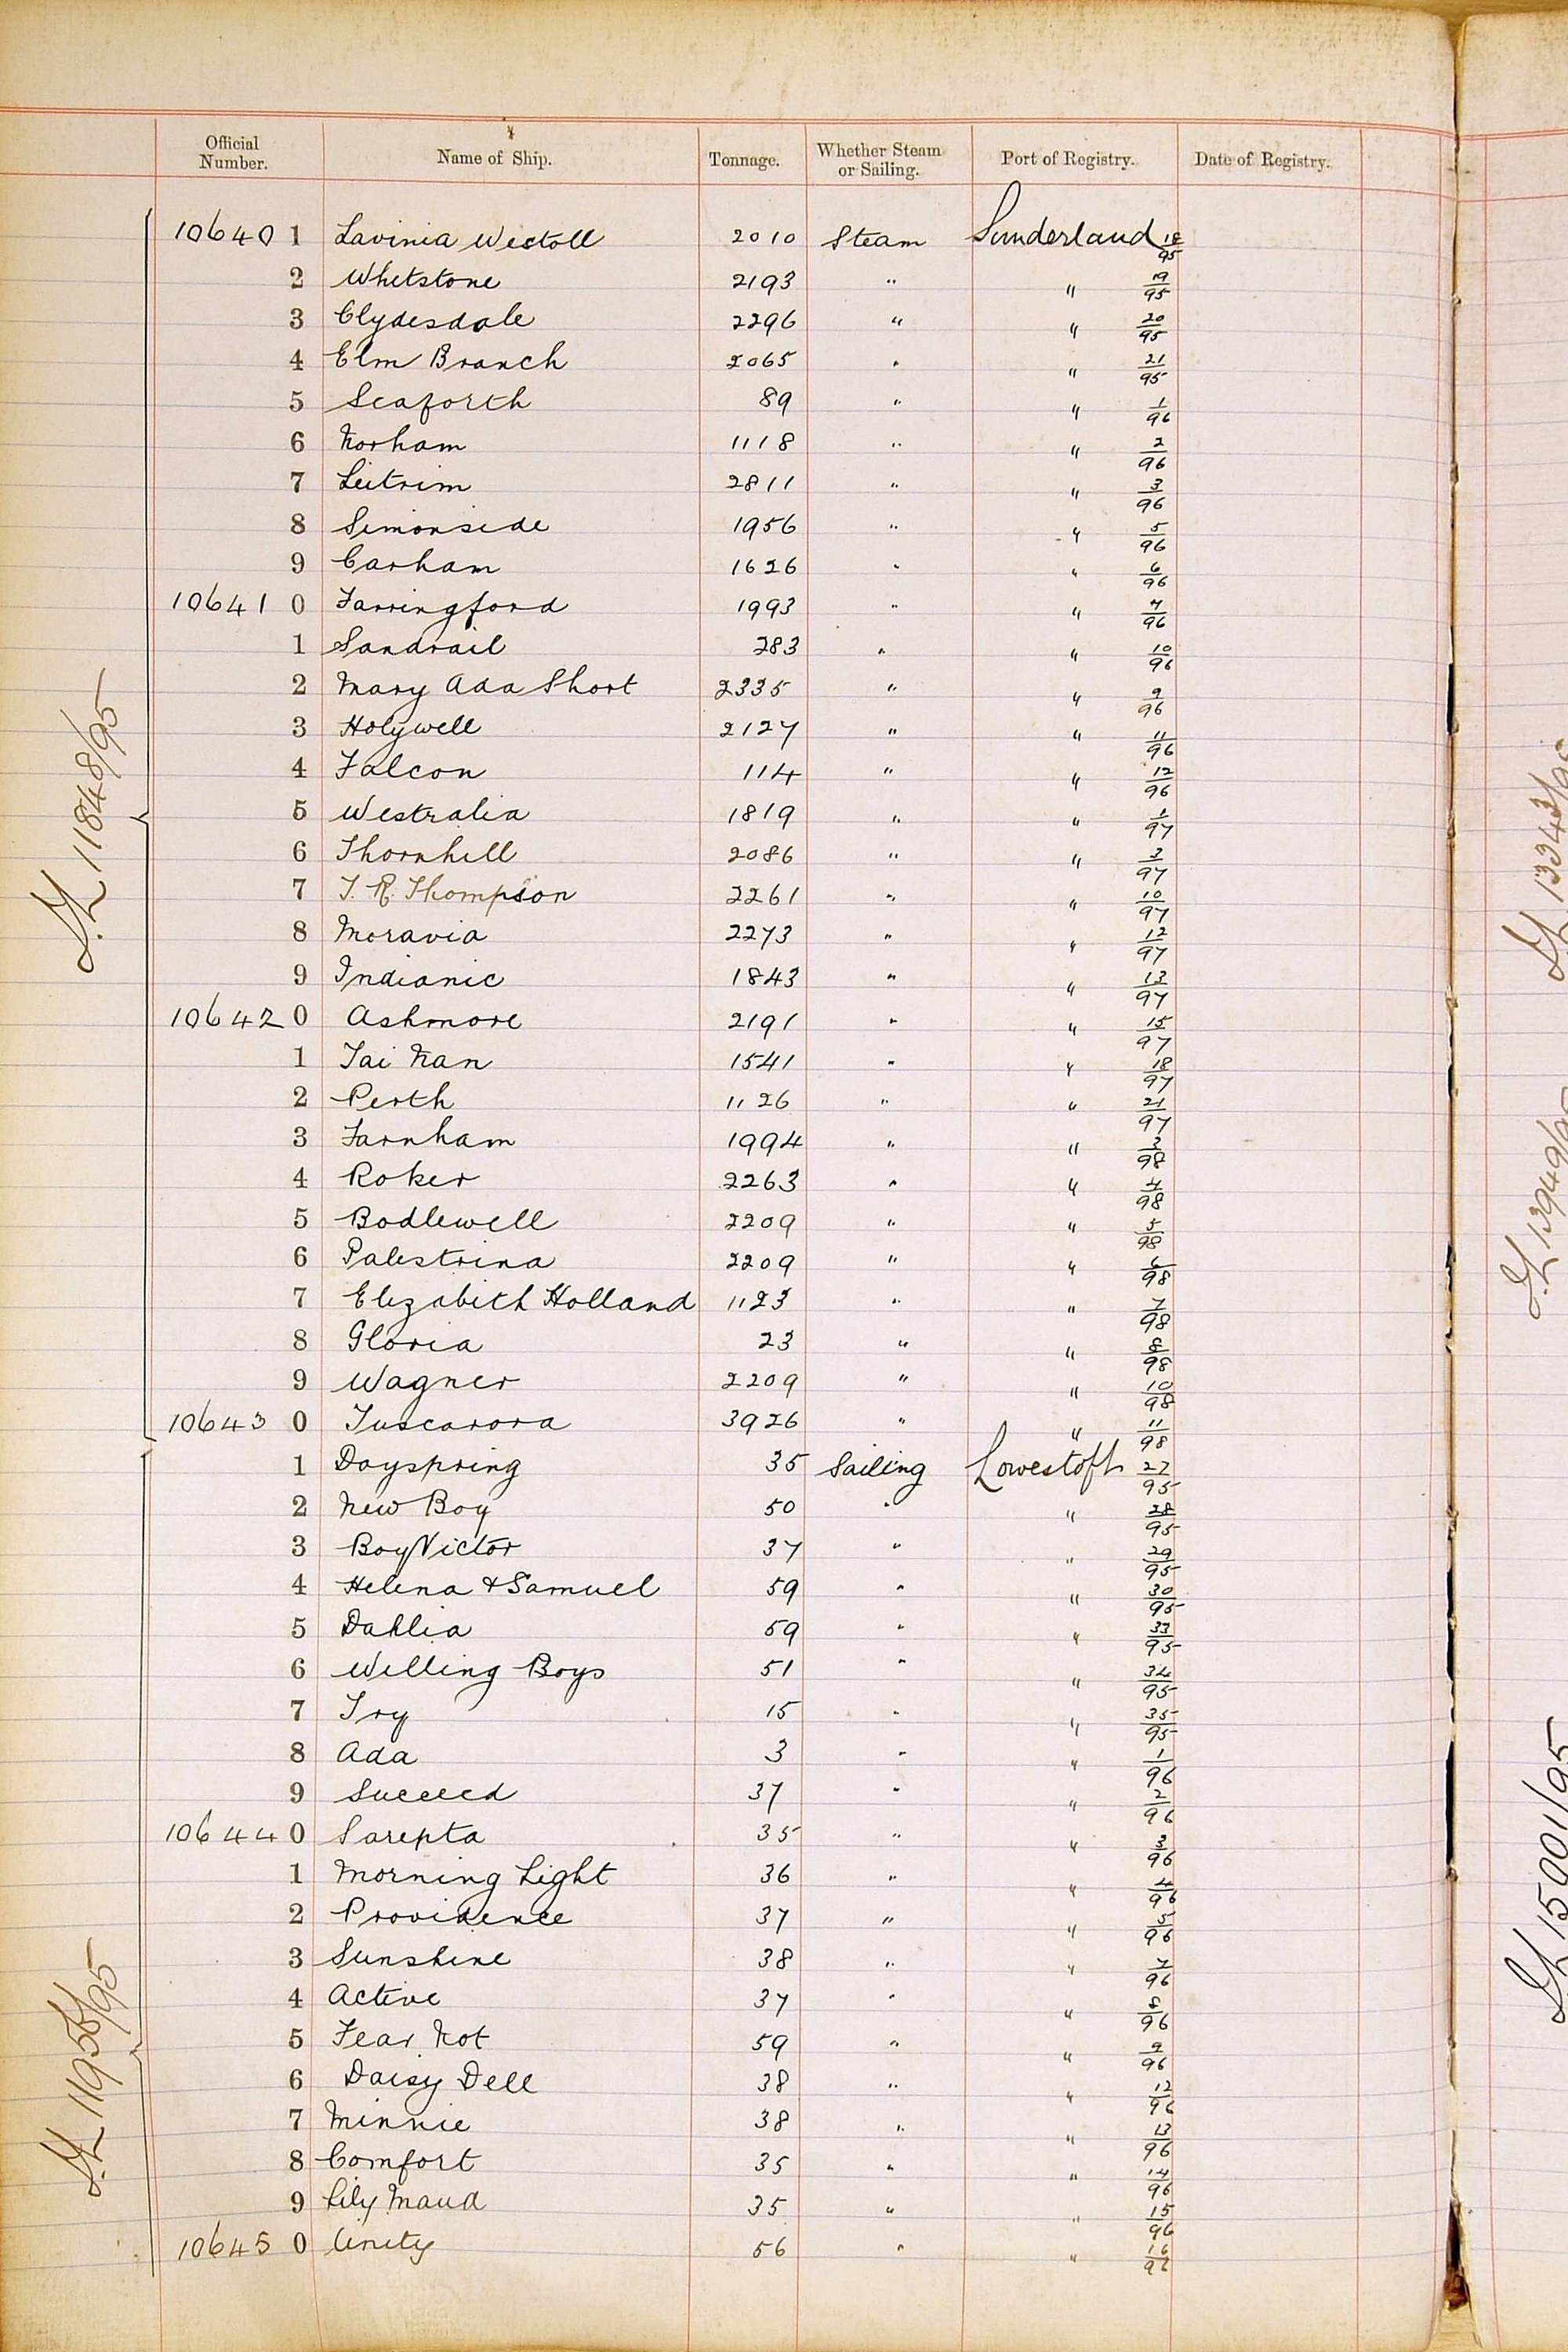 Official Number. Name of Ship. Tonnage. Whether Steam or Sailing. Port of Registry. Date of Registry.
10640 1 Lavinia Westoll 2010 Steam Sunderland 18/95
2 Whetstone 2193 " " 19/95
3 Clydesdale 2296 " " 20/95
4 Elm Branch 2065 " " 21/95
5 Seaforth 89 " " 1/96
6 Norham 1118 " " 2/96
7 Leitrim 2811 " " 3/96
8 Simonside 1956 " " 5/96
9 Carham 1626 " " 6/96
10641 0 Farringford 1993 " " 7/96
1 Sandrail 283 " " 10/96
2 Mary Ada Short 2335 " " 9/96
3 Holywell 2127 " " 11/96
4 Falcon 114 " " 12/96
5 Westralia 1819 " " 1/97
6 Thornhill 2086 " " 3/97
7 T. R. Thompson 2261 " " 10/97
8 Moravia 2273 " " 12/97
9 Indianic 1843 " " 13/97
10642 0 Ashmore 2191 " " 15/97
1 Tai Nan 1541 " " 18/97
2 Perth 1126 " " 21/97
3 Farnham 1994 " " 3/98
4 Roker 2263 " " 4/98
5 Bodlewell 2209 " " 5/98
6 Palestrina 2209 " " 6/98
7 Elizabeth Holland 1123 " " 7/98
8 Gloria 23 " " 8/98
9 Wagner 2209 " " 10/98
10643 0 Tuscarora 3926 " " 11/98
1 Dayspring 35 Sailing Lowestoft 27/95
2 New Boy 50 " " 28/95
3 Boy Victor 37 " " 29/95
4 Helena & Samuel 59 " " 30/95
5 Dahlia 59 " " 33/95
6 Willing Boys 51 " " 34/95
7 Try 15 " " 35/95
8 Ada 3 " " 1/96
9 Succeed 37 " " 2/96
10644 0 Sarepta 35 " " 3/96
1 Morning Light 36 " " 4/96
2 Providence 37 " " 5/96
3 Sunshine 38 " " 7/96
4 Active 37 " " 8/96
5 Fear Not 59 " " 9/96
6 Daisy Dell 38 " " 12/96
7 Minnie 38 " " 13/96
8 Comfort 35 " " 14/96
9 Lily Maud 35 " " 15/96
10645 0 Unity 56 " " 16/96
11848/95
15001/95